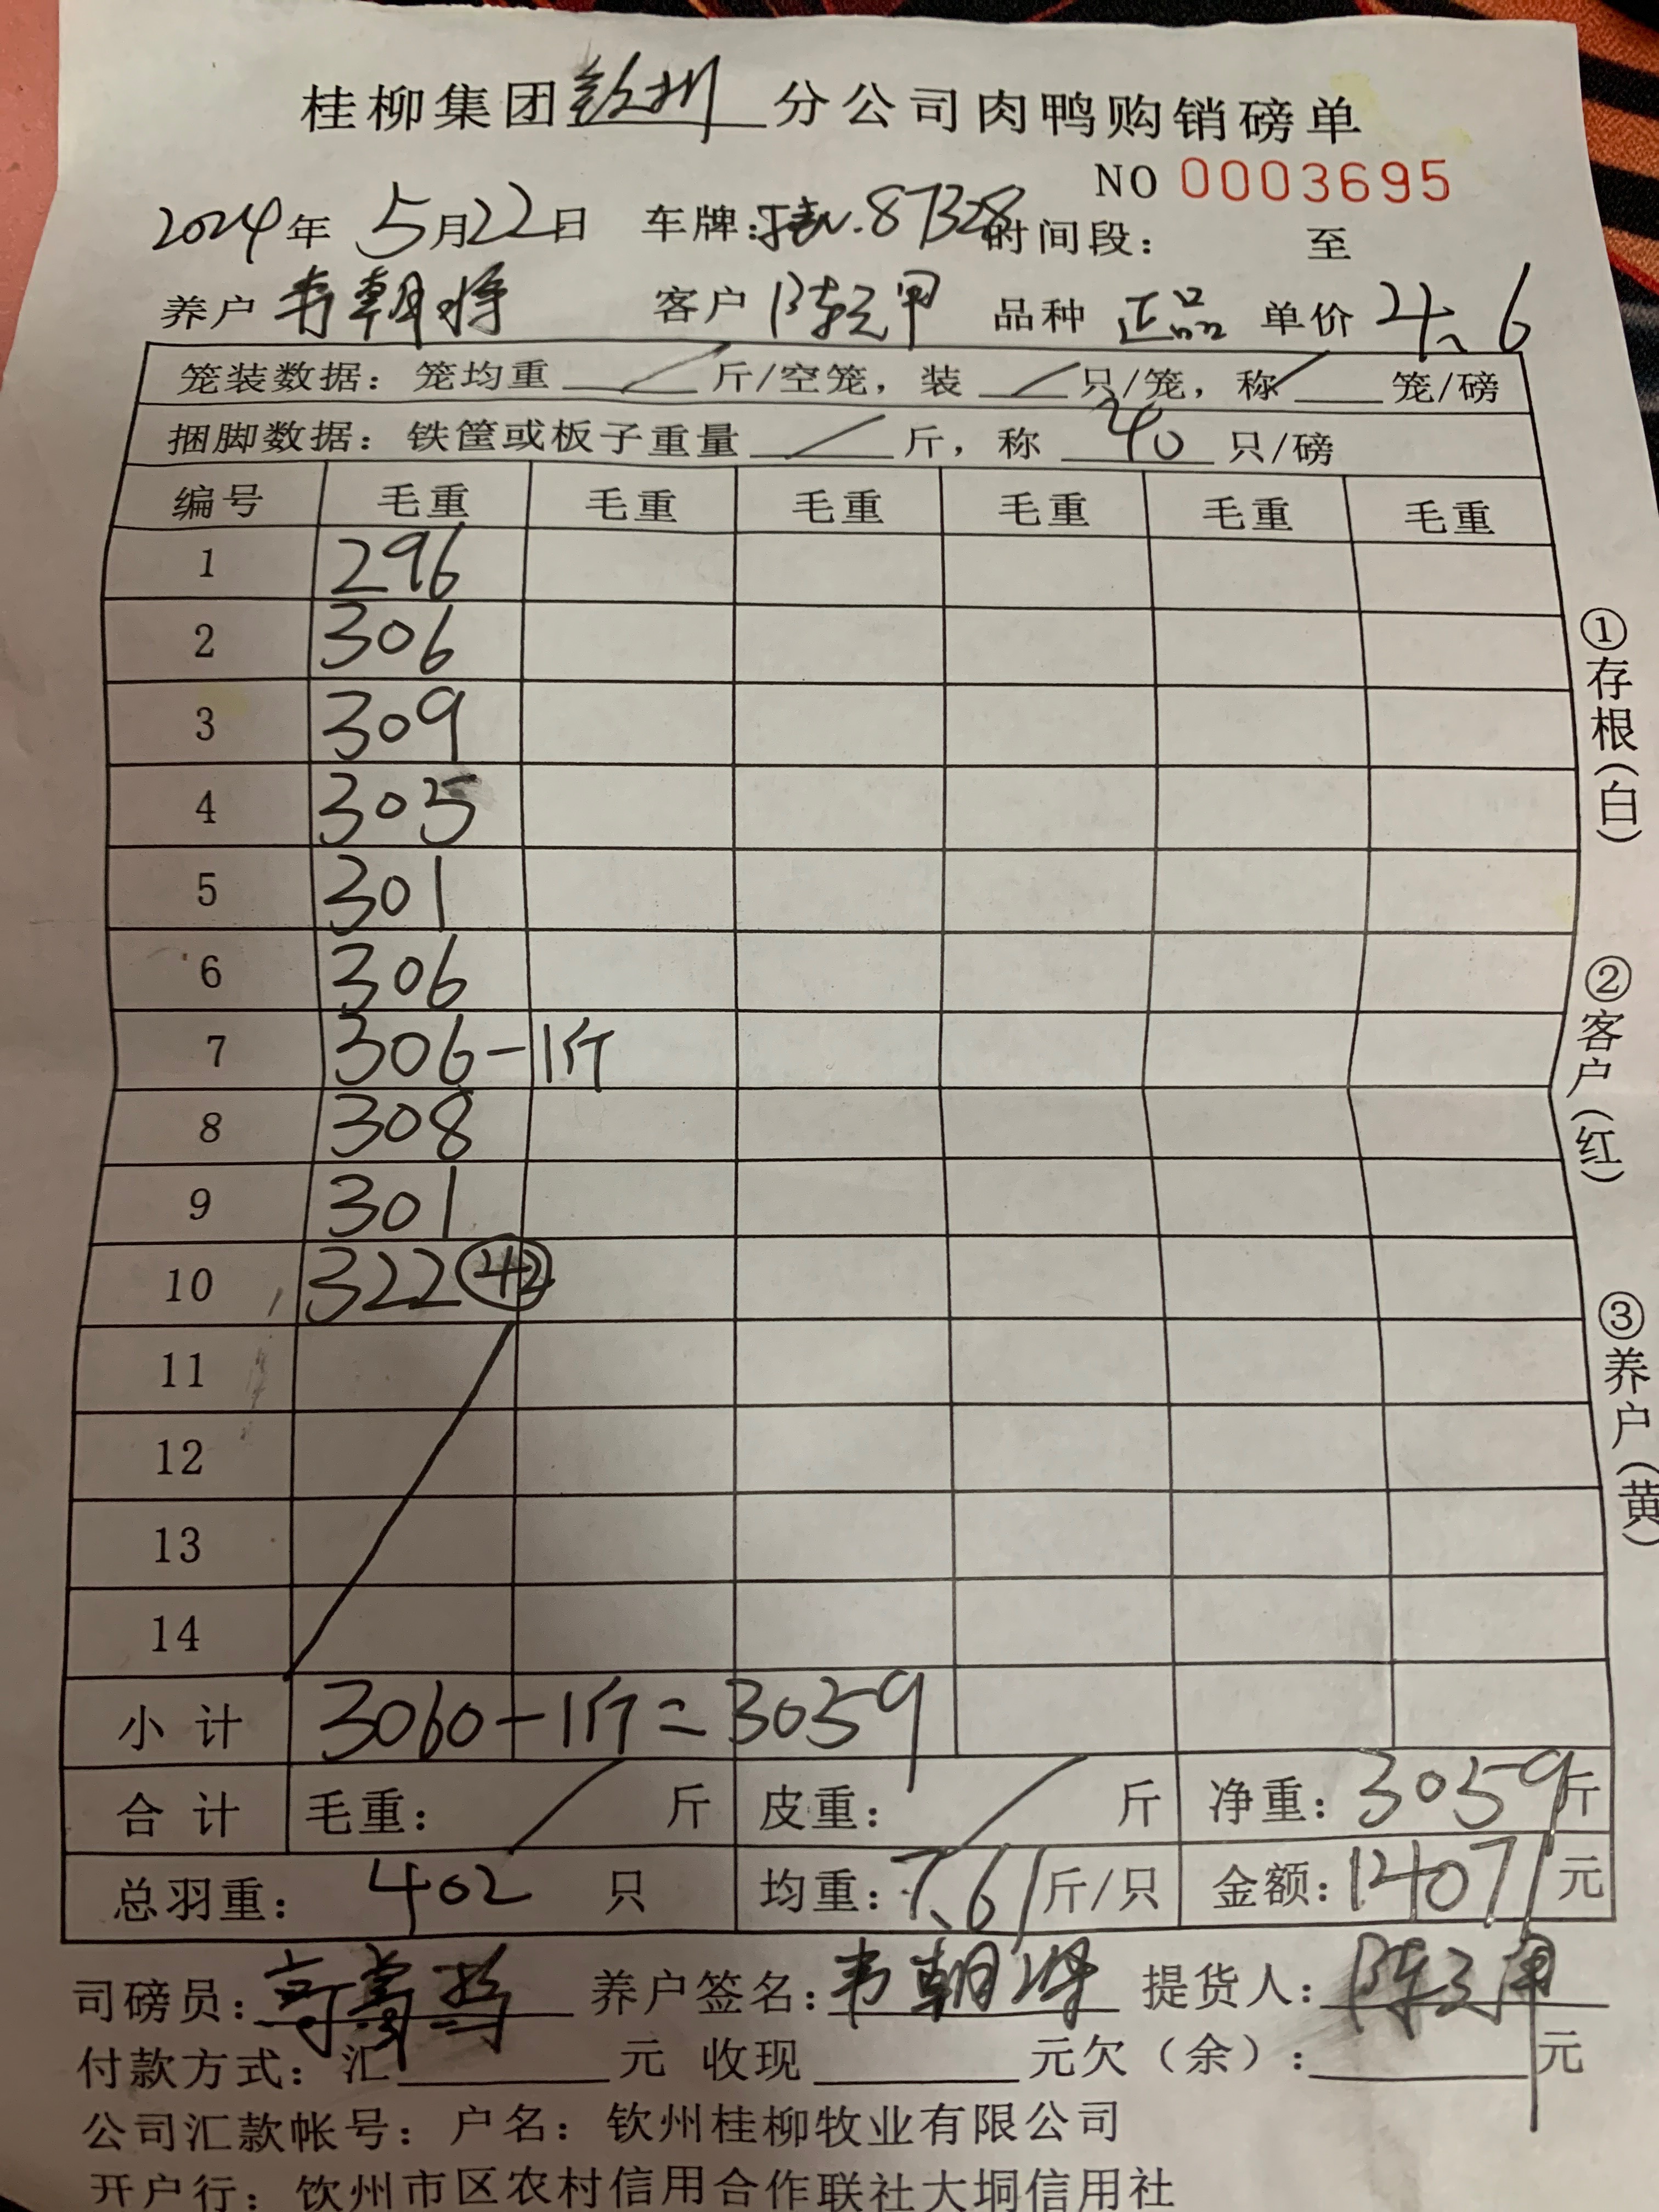 桂柳集团钦州分公司肉鸭购销磅单
NO 0003695
2024年 5月22日 车牌: .87328 时间段: 至
养户 韦朝将 客户 陈元甲 品种 正品 单价 4.6
笼装数据: 笼均重 斤/空笼, 装 只/笼, 称 笼/磅
捆脚数据: 铁筐或板子重量 斤, 称 40 只/磅
编号 毛重 毛重 毛重 毛重 毛重 毛重
1 296
2 306
3 309
4 305
5 301
6 306
7 306-1斤
8 308
9 301
10 322 42
11
12
13
14
小计 3060-1斤=3059
合计 毛重: 斤 皮重: 斤 净重: 3059斤
总羽重: 402 只 均重: 7.61斤/只 金额: 14071元
司磅员: 养户签名: 韦朝将 提货人: 陈元甲
付款方式: 汇 元 收现 元欠(余): 元
公司汇款帐号: 户名: 钦州桂柳牧业有限公司
开户行: 钦州市区农村信用合作联社大垌信用社
①存根(白)
②客户(红)
③养户(黄)